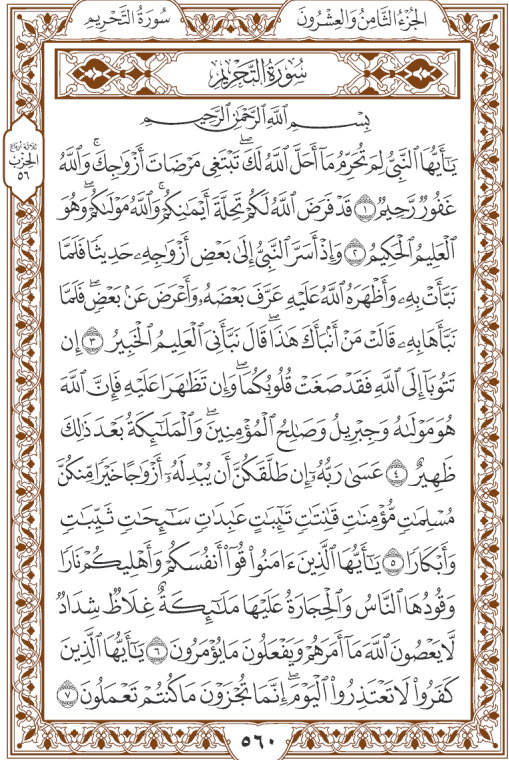 سُورَةُ التَّحْرِيمِ
الجُزْءُ الثَّامِنُ وَالعِشْرُونَ
سُورَةُ التَّحْرِيمِ
ثلاثة أرباع
الحِزْب
٥٦
بِسْمِ ٱللَّهِ ٱلرَّحْمَٰنِ ٱلرَّحِيمِ
يَٰٓأَيُّهَا ٱلنَّبِيُّ لِمَ تُحَرِّمُ مَآ أَحَلَّ ٱللَّهُ لَكَۖ تَبْتَغِي مَرْضَاتَ أَزْوَٰجِكَۚ وَٱللَّهُ
غَفُورٞ رَّحِيمٞ ١ قَدْ فَرَضَ ٱللَّهُ لَكُمْ تَحِلَّةَ أَيْمَٰنِكُمْۚ وَٱللَّهُ مَوْلَىٰكُمْۖ وَهُوَ
ٱلْعَلِيمُ ٱلْحَكِيمُ ٢ وَإِذْ أَسَرَّ ٱلنَّبِيُّ إِلَىٰ بَعْضِ أَزْوَٰجِهِۦ حَدِيثٗا فَلَمَّا
نَبَّأَتْ بِهِۦ وَأَظْهَرَهُ ٱللَّهُ عَلَيْهِ عَرَّفَ بَعْضَهُۥ وَأَعْرَضَ عَنۢ بَعْضٖۖ فَلَمَّا
نَبَّأَهَا بِهِۦ قَالَتْ مَنْ أَنۢبَأَكَ هَٰذَاۖ قَالَ نَبَّأَنِيَ ٱلْعَلِيمُ ٱلْخَبِيرُ ٣ إِن
تَتُوبَآ إِلَى ٱللَّهِ فَقَدْ صَغَتْ قُلُوبُكُمَاۖ وَإِن تَظَٰهَرَا عَلَيْهِ فَإِنَّ ٱللَّهَ
هُوَ مَوْلَىٰهُ وَجِبْرِيلُ وَصَٰلِحُ ٱلْمُؤْمِنِينَۖ وَٱلْمَلَٰٓئِكَةُ بَعْدَ ذَٰلِكَ
ظَهِيرٌ ٤ عَسَىٰ رَبُّهُۥٓ إِن طَلَّقَكُنَّ أَن يُبْدِلَهُۥٓ أَزْوَٰجًا خَيْرٗا مِّنكُنَّ
مُسْلِمَٰتٖ مُّؤْمِنَٰتٖ قَٰنِتَٰتٖ تَٰٓئِبَٰتٍ عَٰبِدَٰتٖ سَٰٓئِحَٰتٖ ثَيِّبَٰتٖ
وَأَبْكَارٗا ٥ يَٰٓأَيُّهَا ٱلَّذِينَ ءَامَنُوا۟ قُوٓا۟ أَنفُسَكُمْ وَأَهْلِيكُمْ نَارٗا
وَقُودُهَا ٱلنَّاسُ وَٱلْحِجَارَةُ عَلَيْهَا مَلَٰٓئِكَةٌ غِلَاظٞ شِدَادٞ
لَّا يَعْصُونَ ٱللَّهَ مَآ أَمَرَهُمْ وَيَفْعَلُونَ مَا يُؤْمَرُونَ ٦ يَٰٓأَيُّهَا ٱلَّذِينَ
كَفَرُوا۟ لَا تَعْتَذِرُوا۟ ٱلْيَوْمَۖ إِنَّمَا تُجْزَوْنَ مَا كُنتُمْ تَعْمَلُونَ ٧
٥٦٠